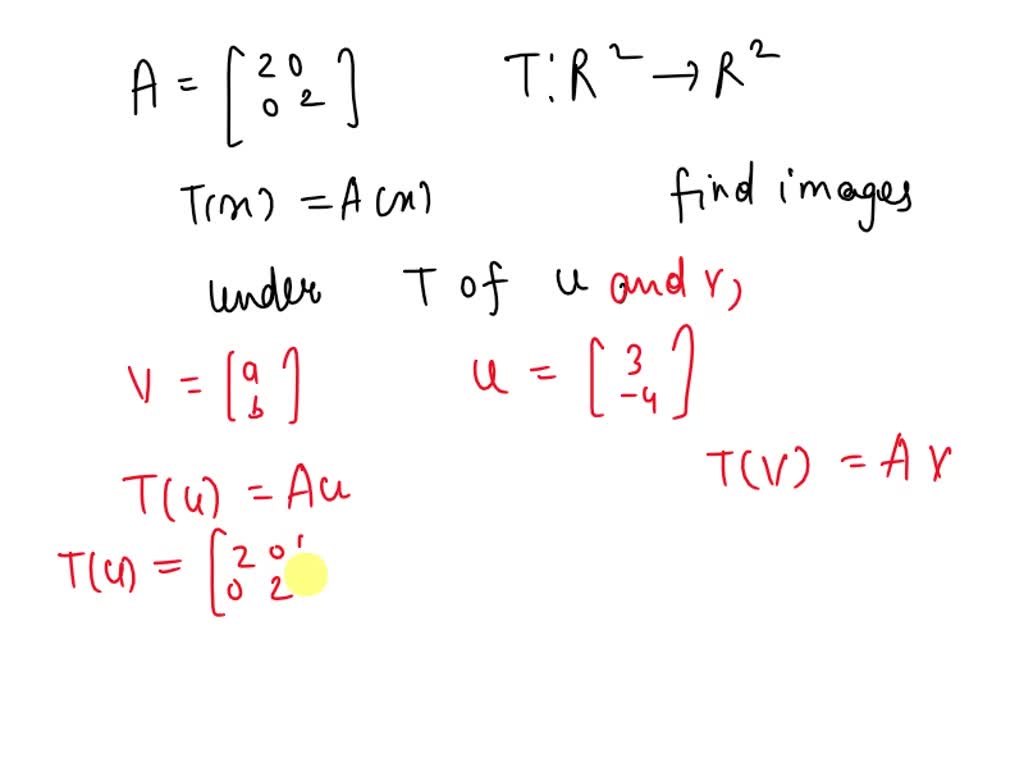 A = [2 0 0 2] T: R² → R²
T(x) = A(x) find images
under T of u and v,
V = [a b] u = [3 -4]
T(u) = Au T(V) = AV
T(u) = [2 0 0 2